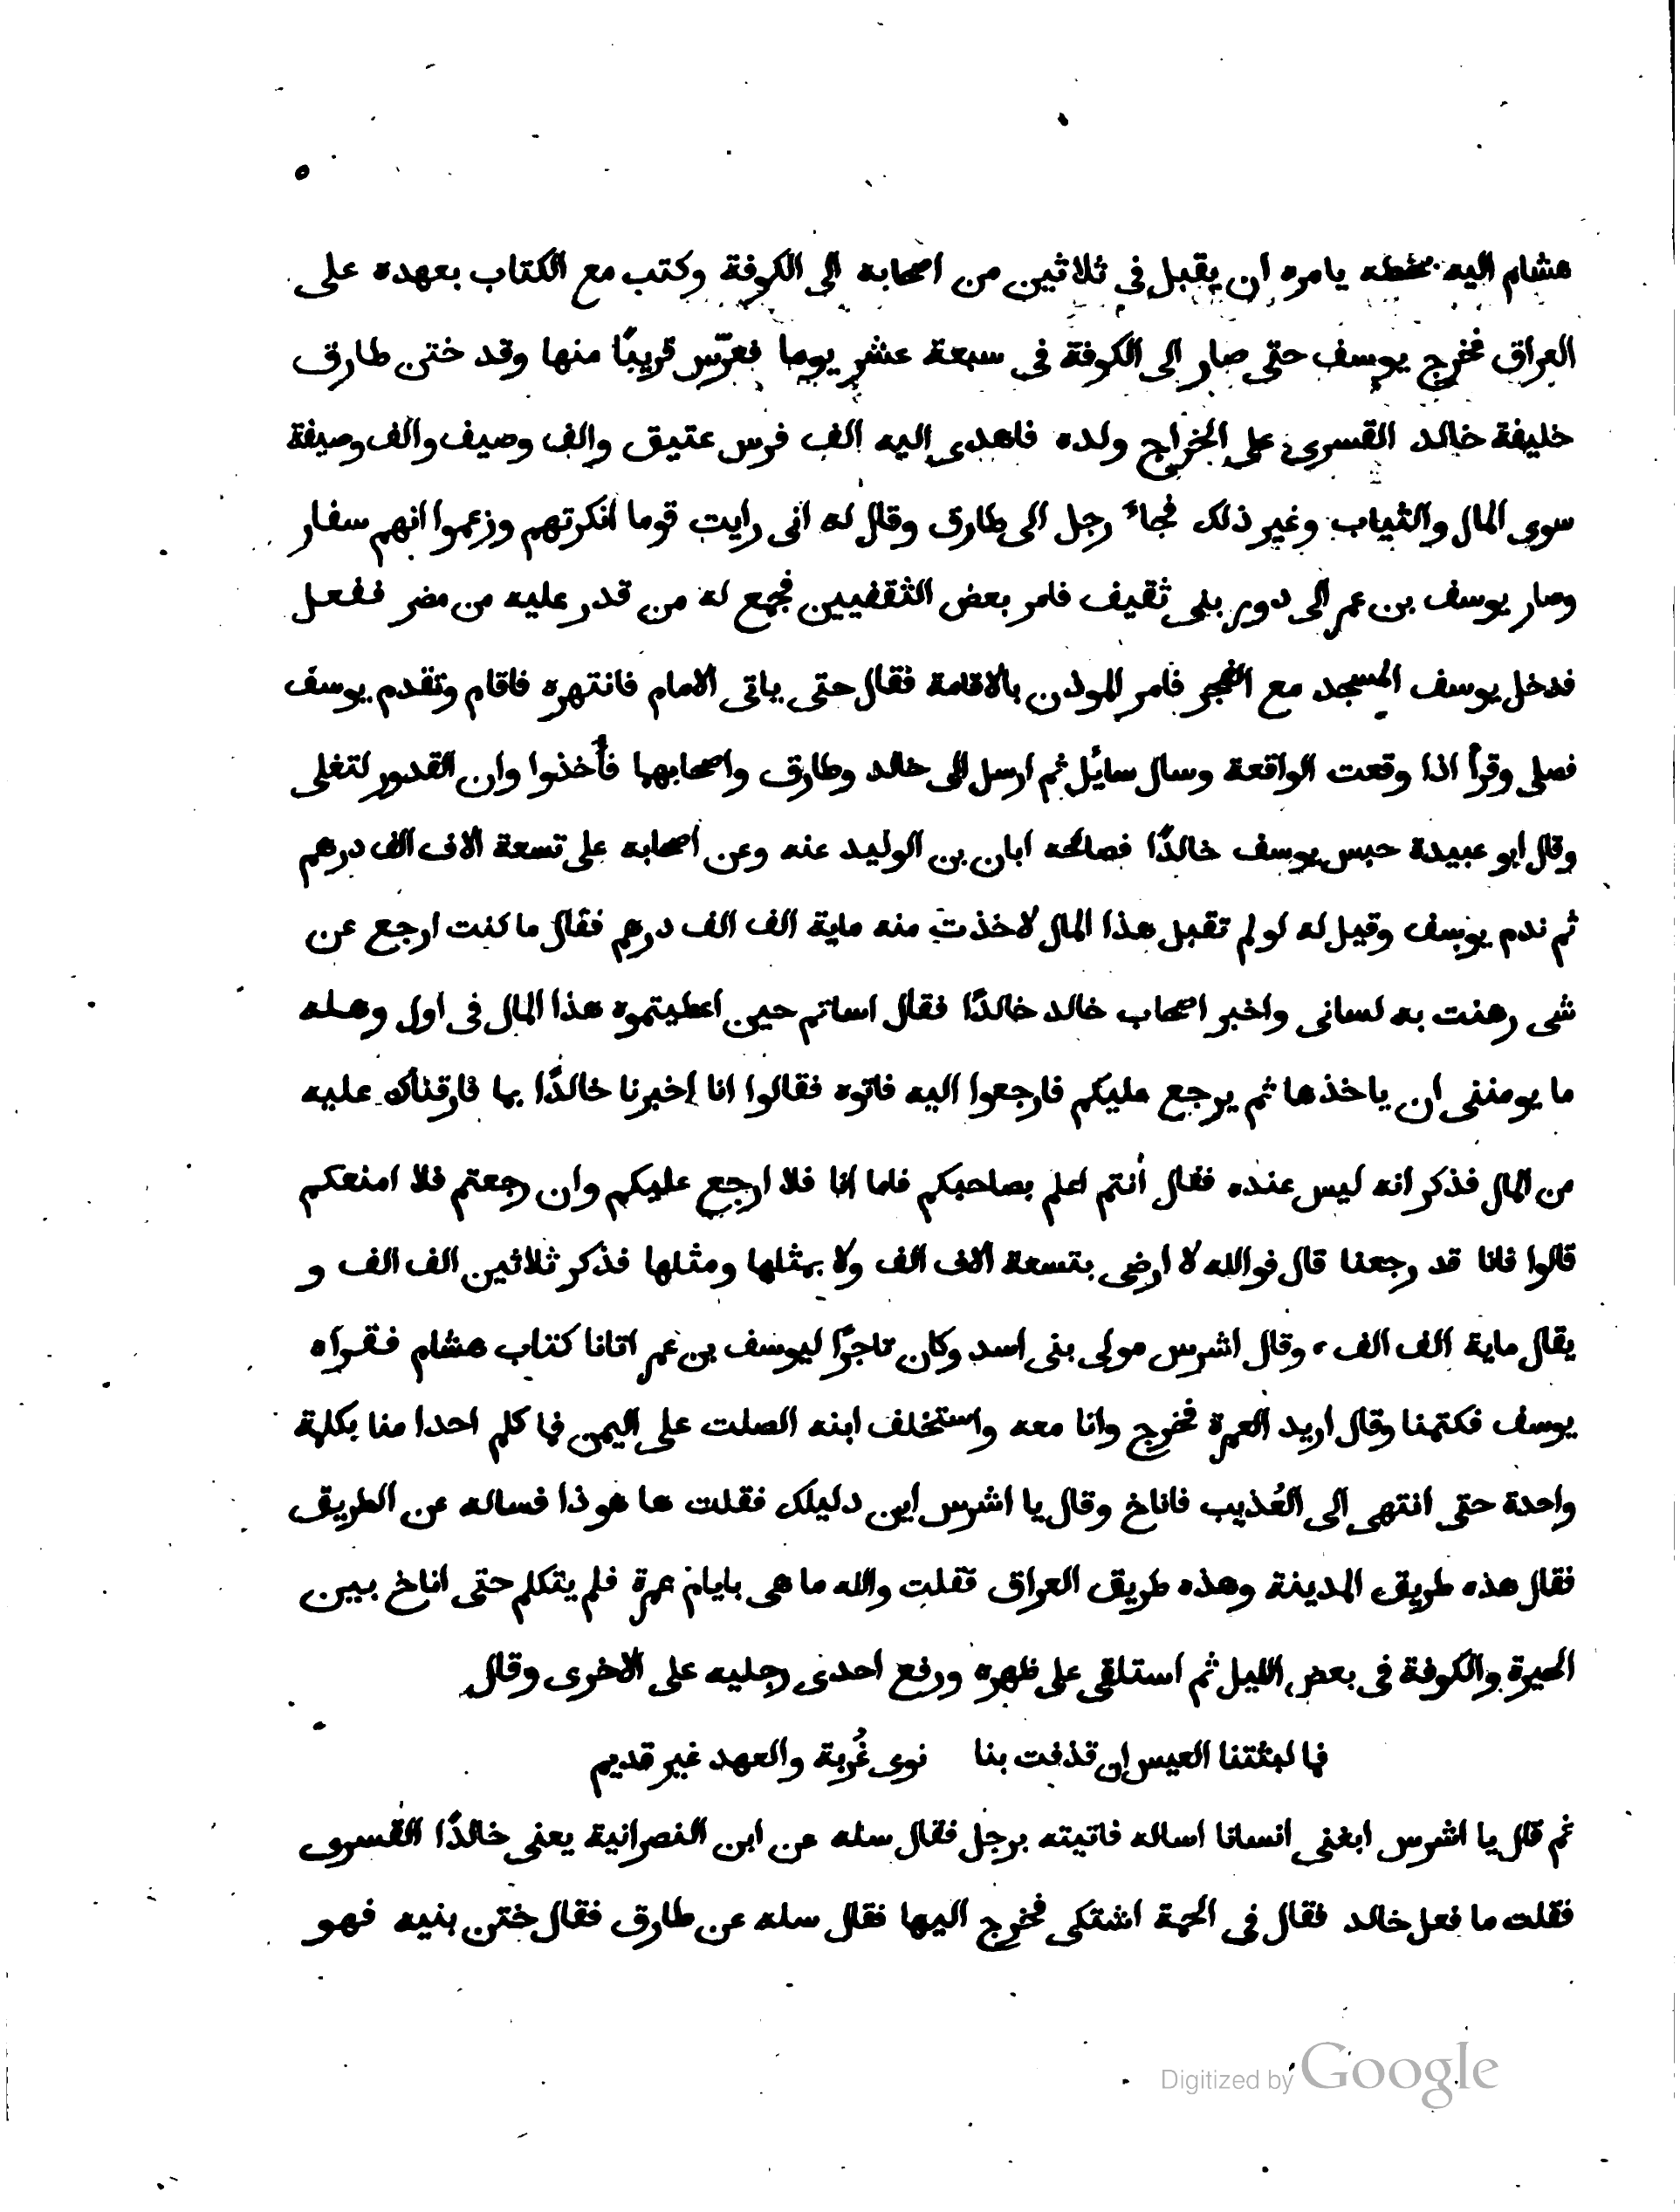 ٥
هشام اليه بخطه يامره ان يقبل فى ثلاثين من اصحابه الى الكوفة وكتب مع الكتاب بعهده على
العراق فخرج يوسف حتى صار الى الكوفة فى سبعة عشر يوما فعرّس قريبًا منها وقد ختن طارق
خليفة خالد القسرى على الخراج ولده فاهدى اليه الف فرس عتيق والف وصيف والف وصيفة
سوى المال والثياب وغير ذلك فجاء رجل الى طارق وقال له انى رايت قوما انكرتهم وزعموا انهم سفار
وصار يوسف بن عمر الى دور بنى ثقيف فامر بعض الثقفيين فجمع له من قدر عليه من مضر ففعل
فدخل يوسف المسجد مع الفجر فامر الموذن بالاقامة فقال حتى ياتى الامام فانتهره فاقام وتقدم يوسف
فصلى وقرأ اذا وقعت الواقعة وسال سايل ثم ارسل الى خالد وطارق واصحابهما فأُخذوا وان القدور لتغلى
وقال ابو عبيدة حبس يوسف خالدًا فصالحه ابان بن الوليد عنه وعن اصحابه على تسعة الاف الف درهم
ثم ندم يوسف وقيل له لو لم تقبل هذا المال لاخذت منه ماية الف الف درهم فقال ما كنت ارجع عن
شى رهنت به لسانى واخبر اصحاب خالد خالدًا فقال اساتم حين اعطيتموه هذا المال فى اول وهله
ما يومننى ان ياخذها ثم يرجع عليكم فارجعوا اليه فاتوه فقالوا انا اخبرنا خالدًا بما فارقناك عليه
من المال فذكر انه ليس عنده فقال أنتم اعلم بصاحبكم فاما انا فلا ارجع عليكم وان رجعتم فلا امنعكم
قالوا فانا قد رجعنا قال فوالله لا ارضى بتسعة الاف الف ولا بمثلها ومثلها فذكر ثلاثين الف الف و
يقال ماية الف الف، وقال اشرس مولى بنى اسد وكان تاجرًا ليوسف بن عمر اتانا كتاب هشام فقراه
يوسف فكتمنا وقال اريد العمرة فخرج وانا معه واستخلف ابنه الصلت على اليمن فما كلم احدا منا بكلمة
واحدة حتى انتهى الى العُذيب فاناخ وقال يا اشرس اين دليلك فقلت ها هو ذا فساله عن الطريق
فقال هذه طريق المدينة وهذه طريق العراق فقلت والله ما هى بايام عمرة فلم يتكلم حتى اناخ بين
الحيرة والكوفة فى بعض الليل ثم استلقى على ظهره ورفع احدى رجليه على الاخرى وقال
فما لبثتنا العيس ان قذفت بنا نوى غُربة والعهد غير قديم
ثم قال يا اشرس ابغنى انسانا اساله فاتيته برجل فقال سله عن ابن النصرانية يعنى خالدًا القسرى
فقلت ما فعل خالد فقال فى الحمة اشتكى فخرج اليها فقال سله عن طارق فقال ختن بنيه فهو
Digitized by Google